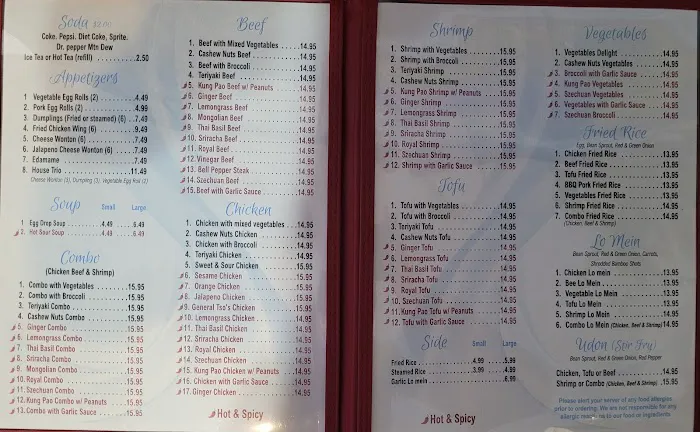 Soda $2.00
Coke. Pepsi. Diet Coke, Sprite.
Dr. pepper Mtn Dew
Ice Tea or Hot Tea (refill) 2.50
Appetizers
1 Vegetable Egg Rolls (2) 4.49
2 Pork Egg Rolls (2) 4.99
3 Dumplings (Fried or steamed) (6) 7.49
4 Fried Chicken Wing (6) 9.49
5 Cheese Wonton (6) 7.49
6 Jalapeno Cheese Wonton (6) 7.49
7 Edamame 7.49
8 House Trio 11.49
Cheese Wonton (3), Dumpling (3), Vegetable Egg Roll (2)
Soup Small Large
1 Egg Drop Soup 4.49 6.49
2 Hot Sour Soup 4.49 6.49
Combo
(Chicken Beef & Shrimp)
1. Combo with Vegetables 15.95
2. Combo with Broccoli 15.95
3. Teriyaki Combo 15.95
4. Cashew Nuts Combo 15.95
5. Ginger Combo 15.95
6. Lemongrass Combo 15.95
7. Thai Basil Combo 15.95
8. Sriracha Combo 15.95
9. Mongolian Combo 15.95
10. Royal Combo 15.95
11. Szechuan Combo 15.95
12. Kung Pao Combo w/ Peanuts 15.95
13. Combo with Garlic Sauce 15.95
Beef
1. Beef with Mixed Vegetables 14.95
2. Cashew Nuts Beef 14.95
3. Beef with Broccoli 14.95
4. Teriyaki Beef 14.95
5. Kung Pao Beef w/ Peanuts 14.95
6. Ginger Beef 14.95
7. Lemongrass Beef 14.95
8. Mongolian Beef 14.95
9. Thai Basil Beef 14.95
10. Sriracha Beef 14.95
11. Royal Beef 14.95
12. Vinegar Beef 14.95
13. Bell Pepper Steak 14.95
14. Szechuan Beef 14.95
15. Beef with Garlic Sauce 14.95
Chicken
1. Chicken with mixed vegetables 14.95
2. Cashew Nuts Chicken 14.95
3. Chicken with Broccoli 14.95
4. Teriyaki Chicken 14.95
5. Sweet & Sour Chicken 14.95
6. Sesame Chicken 14.95
7. Orange Chicken 14.95
8. Jalapeno Chicken 14.95
9. General Tso's Chicken 14.95
10. Lemongrass Chicken 14.95
11. Thai Basil Chicken 14.95
12. Sriracha Chicken 14.95
13. Royal Chicken 14.95
14. Szechuan Chicken 14.95
15. Kung Pao Chicken w/ Peanuts 14.95
16. Chicken with Garlic Sauce 14.95
17. Ginger Chicken 14.95
Hot & Spicy
Shrimp
1. Shrimp with Vegetables 15.95
2. Shrimp with Broccoli 15.95
3. Teriyaki Shrimp 15.95
4. Cashew Nuts Shrimp 15.95
5. Kung Pao Shrimp w/ Peanuts 15.95
6. Ginger Shrimp 15.95
7. Lemongrass Shrimp 15.95
8. Thai Basil Shrimp 15.95
9. Sriracha Shrimp 15.95
10. Royal Shrimp 15.95
11. Szechuan Shrimp 15.95
12. Shrimp with Garlic Sauce 15.95
Tofu
1. Tofu with Vegetables 14.95
2. Tofu with Broccoli 14.95
3. Teriyaki Tofu 14.95
4. Cashew Nuts Tofu 14.95
5. Ginger Tofu 14.95
6. Lemongrass Tofu 14.95
7. Thai Basil Tofu 14.95
8. Sriracha Tofu 14.95
9. Royal Tofu 14.95
10. Szechuan Tofu 14.95
11. Kung Pao Tofu w/ Peanuts 14.95
12. Tofu with Garlic Sauce 14.95
Side Small Large
Fried Rice 4.99 5.99
Steamed Rice 3.99 4.99
Garlic Lo mein 6.99
Hot & Spicy
Vegetables
1. Vegetables Delight 14.95
2. Cashew Nuts Vegetables 14.95
3. Broccoli with Garlic Sauce 14.95
4. Kung Pao Vegetables 14.95
5. Szechuan Vegetables 14.95
6. Vegetables with Garlic Sauce 14.95
7. Szechuan Broccoli 14.95
Fried Rice
Egg, Bean Sprout, Red & Green Onion
1. Chicken Fried Rice 13.95
2. Beef Fried Rice 13.95
3. Tofu Fried Rice 13.95
4. BBQ Pork Fried Rice 13.95
5. Vegetables Fried Rice 13.95
6. Shrimp Fried Rice 14.95
7. Combo Fried Rice 14.95
(Chicken, Beef & Shrimp)
Lo Mein
Bean Sprout, Red & Green Onion, Carrots,
Shredded Bamboo Shots
1. Chicken Lo mein 13.95
2. Bee Lo mein 13.95
3. Vegetable Lo mein 13.95
4. Tofu Lo Mein 13.95
5. Shrimp Lo mein 14.95
6. Combo Lo Mein (Chicken, Beef & Shrimp) 14.95
Udon (Stir Fry)
Bean Sprout, Red & Green Onion, Red Pepper
Chicken, Tofu or Beef 14.95
Shrimp or Combo (Chicken, Beef & Shrimp) 15.95
Please alert your server of any food allergies
prior to ordering. We are not responsible for any
allergic reactions to out food or ingredients.